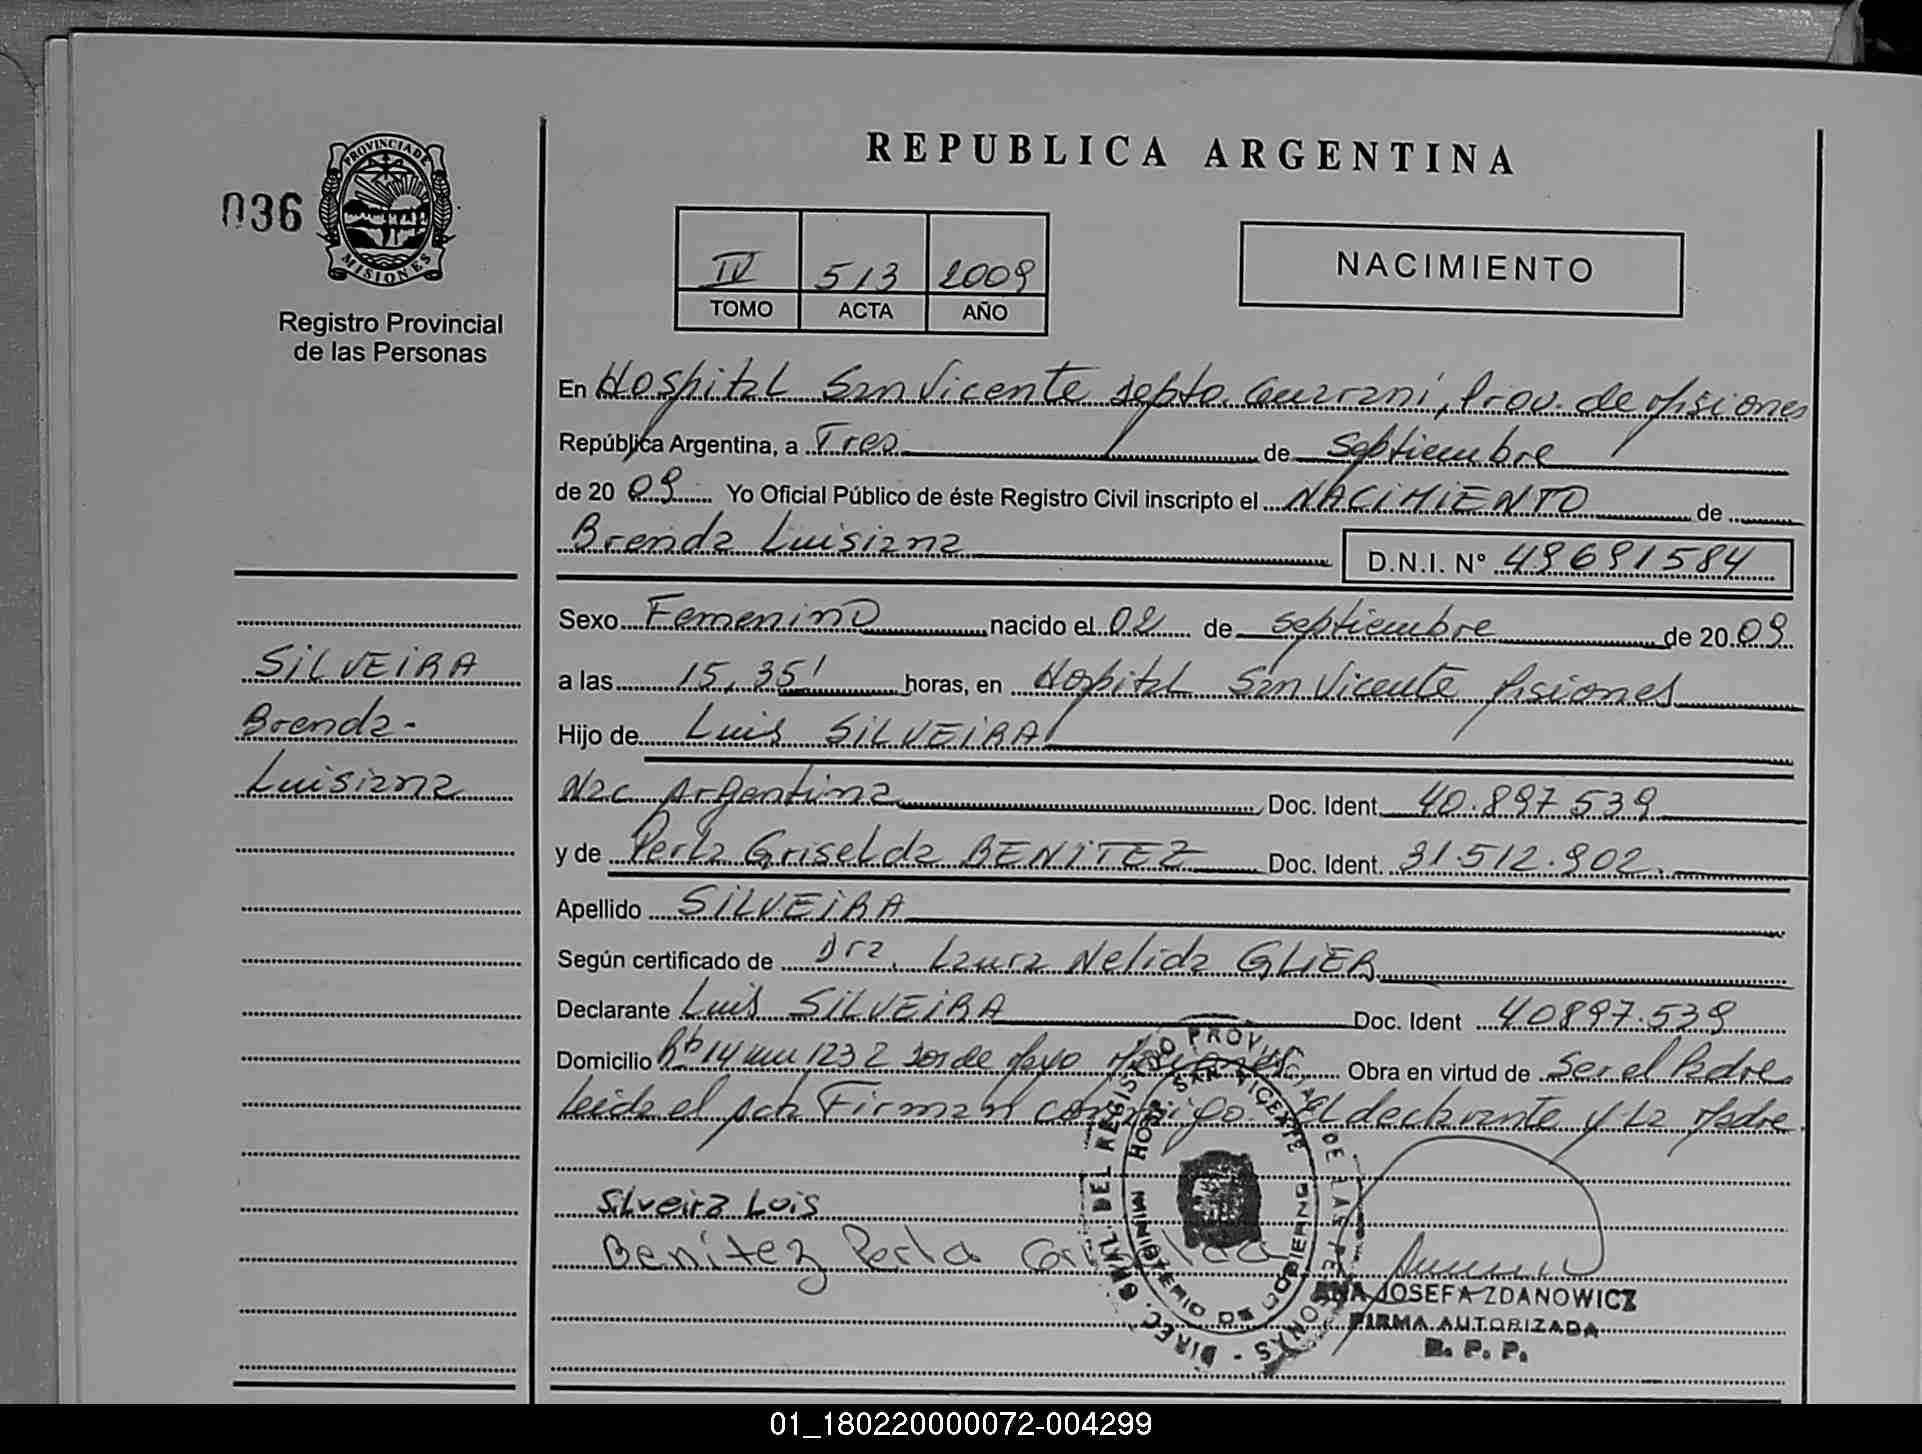 REPUBLICA ARGENTINA
036
PROVINCIA DE
MISIONES
Registro Provincial
de las Personas
IV 513 2009
TOMO ACTA AÑO
NACIMIENTO
En Hospital San Vicente depto. Guarani, Prov. de Misiones
República Argentina, a Tres de Septiembre
de 20 09 Yo Oficial Público de éste Registro Civil inscripto el NACIMIENTO de
Brenda Luisiana D.N.I. N° 49691584
Sexo Femenino nacido el 02 de septiembre de 20 09
a las 15,35' horas, en Hospital San Vicente Misiones
Hijo de Luis SILVEIRA
Nac Argentina Doc. Ident. 40.897.539
y de Perla Griselda BENITEZ Doc. Ident. 31.512.902.
Apellido SILVEIRA
Según certificado de Dra. Laura Nelida GLIER
Declarante Luis SILVEIRA Doc. Ident 40897.539
Domicilio 14 1232 de Mayo Misiones Obra en virtud de Ser el Padre
Leida el acta Firman conmigo el declarante y La Madre
SILVEIRA
Brenda-
Luisiana
Silveira Luis
Benitez Perla
DIREC. GRAL. DEL REGISTRO PROVINCIAL DE LAS PERSONAS
HOSP SAN VICENTE
MINISTERIO DE GOBIERNO
ANA JOSEFA ZDANOWICZ
FIRMA AUTORIZADA
R. P. P.
01_180220000072-004299